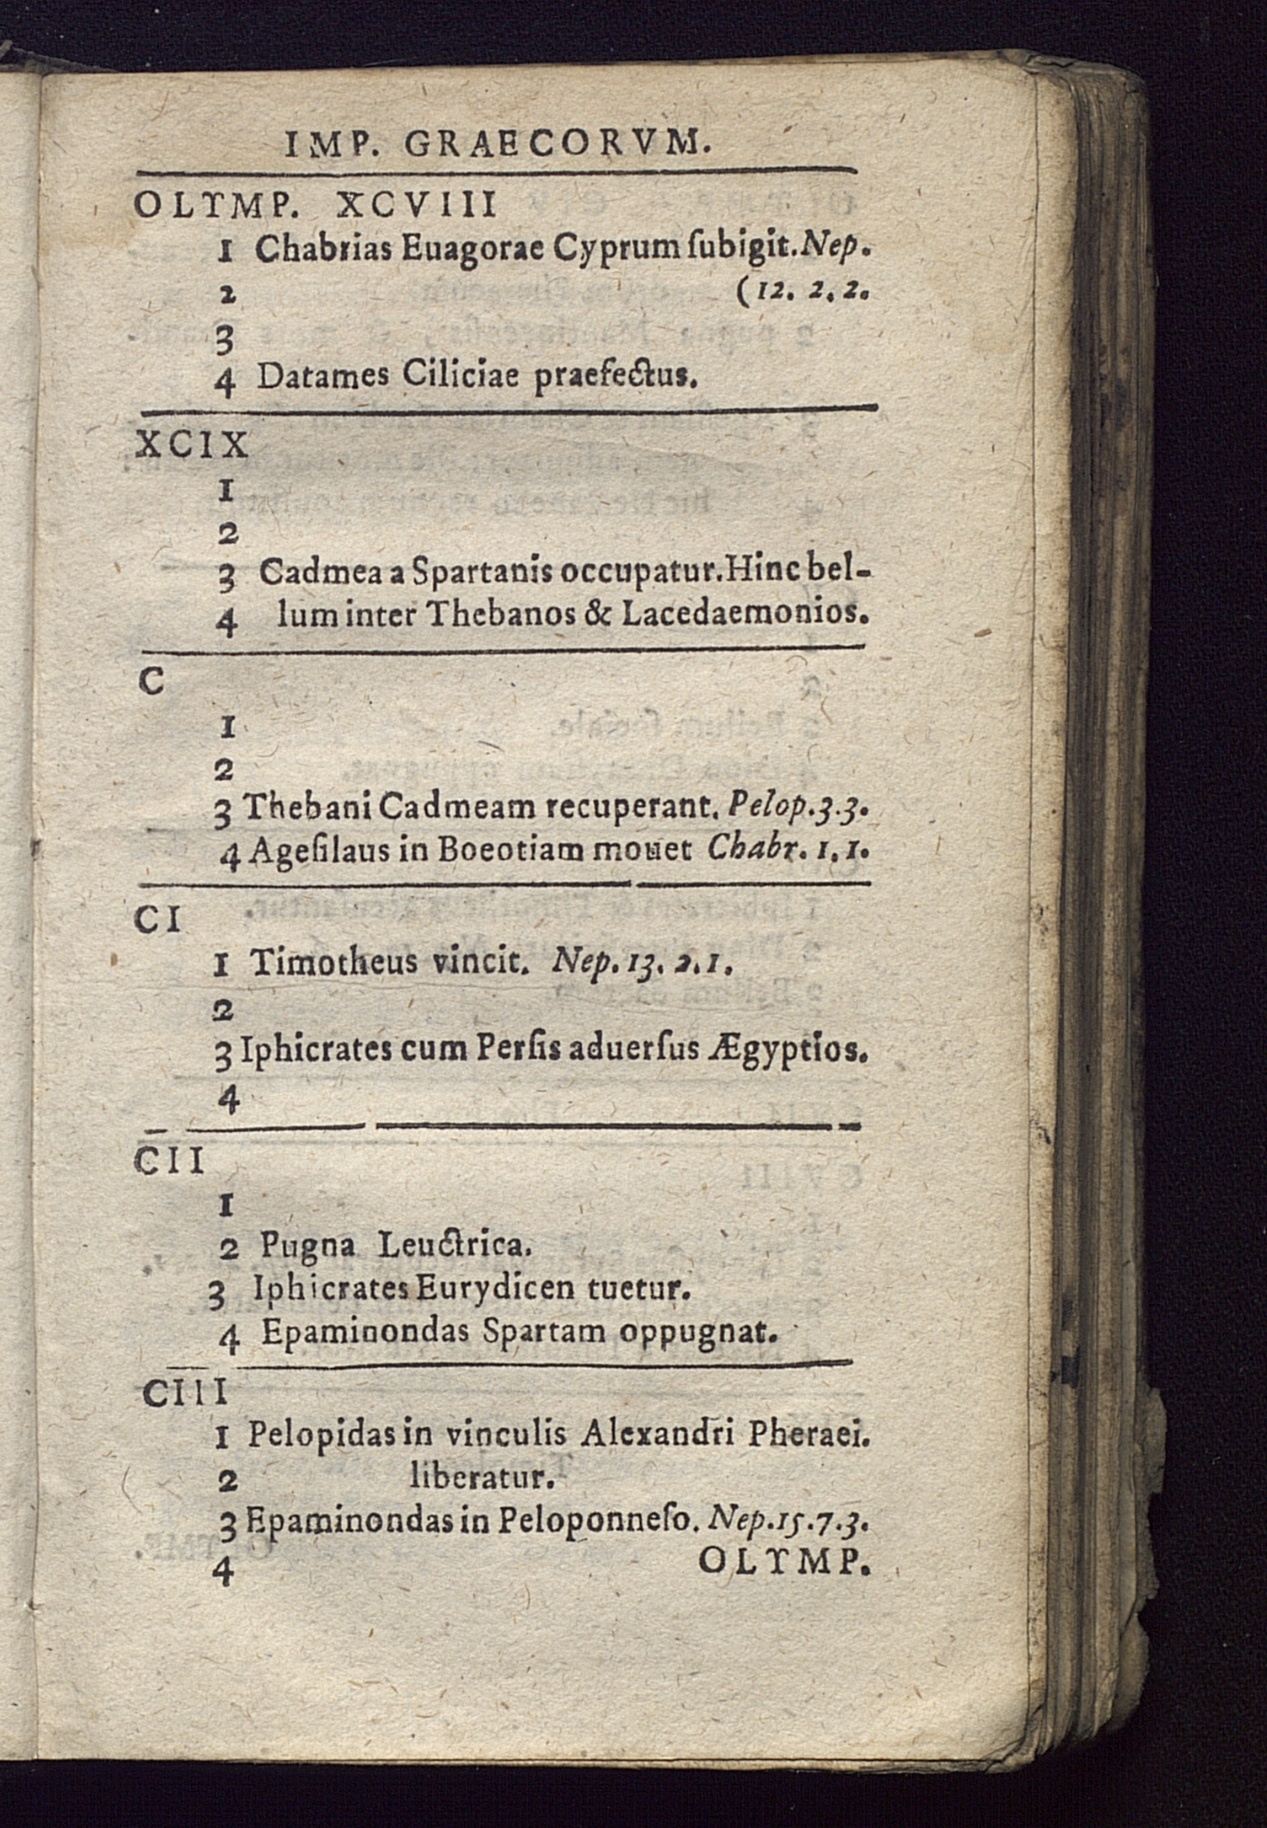 IMP. GRAECORVM.
OLYMP. XCVIII
1 Chabrias Euagorae Cyprum ſubigit. Nep.
2 (12. 2. 2.
3
4 Datames Ciliciae praefectus.
XCIX
1
2
3 Cadmea a Spartanis occupatur. Hinc bel-
4 lum inter Thebanos & Lacedaemonios.
C
1
2
3 Thebani Cadmeam recuperant. Pelop. 3. 3.
4 Ageſilaus in Boeotiam mouet Chabr. 1. 1.
CI
1 Timotheus vincit. Nep. 13. 2. 1.
2
3 Iphicrates cum Perſis aduerſus Ægyptios.
4
CII
1
2 Pugna Leuctrica.
3 Iphicrates Eurydicen tuetur.
4 Epaminondas Spartam oppugnat.
CIII
1 Pelopidas in vinculis Alexandri Pheraei.
2 liberatur.
3 Epaminondas in Peloponneſo. Nep. 15. 7. 3.
4 OLYMP.